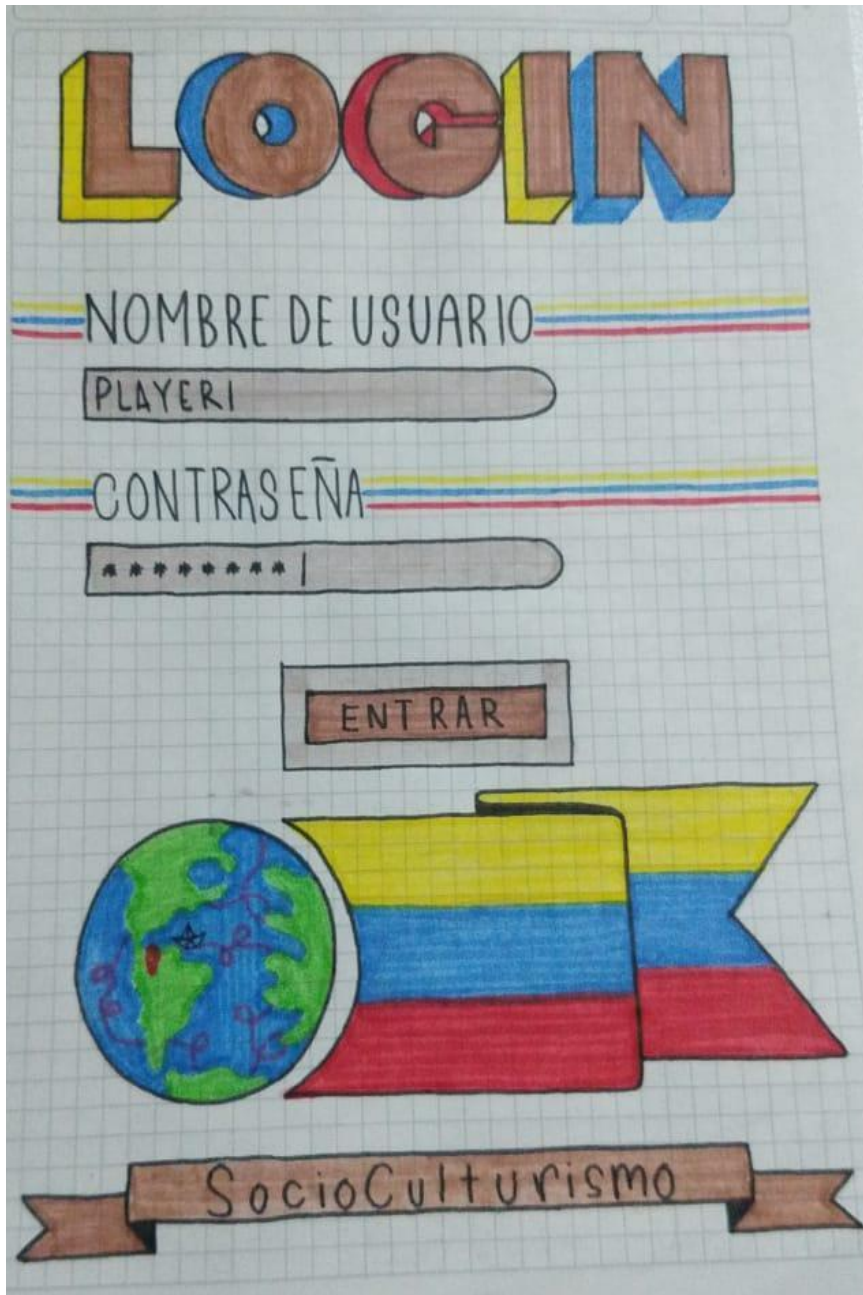 LOGIN
NOMBRE DE USUARIO
PLAYER1
CONTRASEÑA
********|
ENTRAR
SocioCulturismo